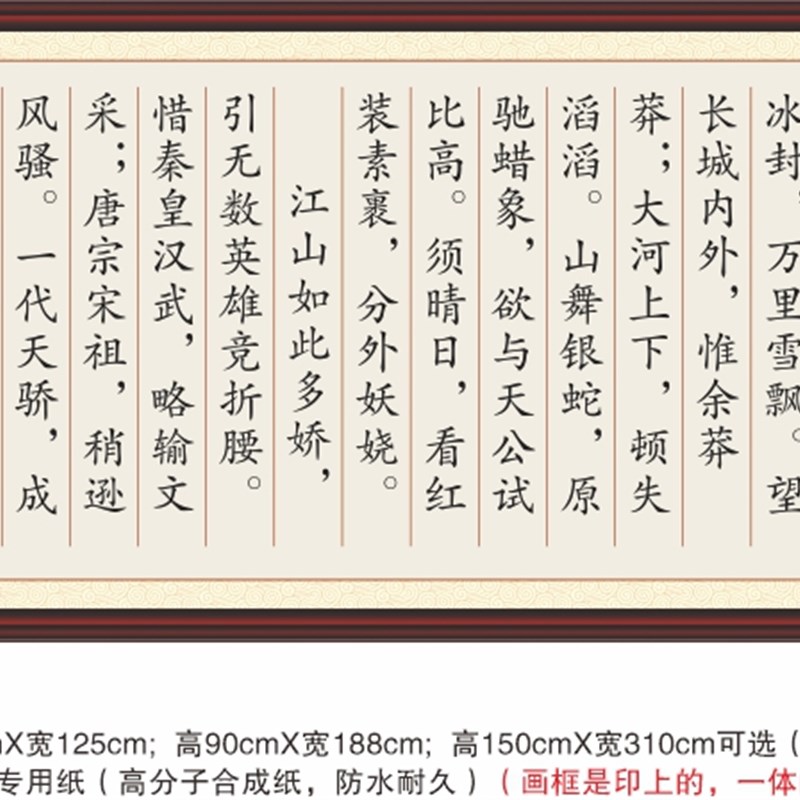 冰封，万里雪飘。望
长城内外，惟余莽
莽；大河上下，顿失
滔滔。山舞银蛇，原
驰蜡象，欲与天公试
比高。须晴日，看红
装素裹，分外妖娆。
江山如此多娇，
引无数英雄竞折腰。
惜秦皇汉武，略输文
采；唐宗宋祖，稍逊
风骚。一代天骄，成
mX宽125cm；高90cmX宽188cm；高150cmX宽310cm可选（
专用纸（高分子合成纸，防水耐久）（画框是印上的，一体